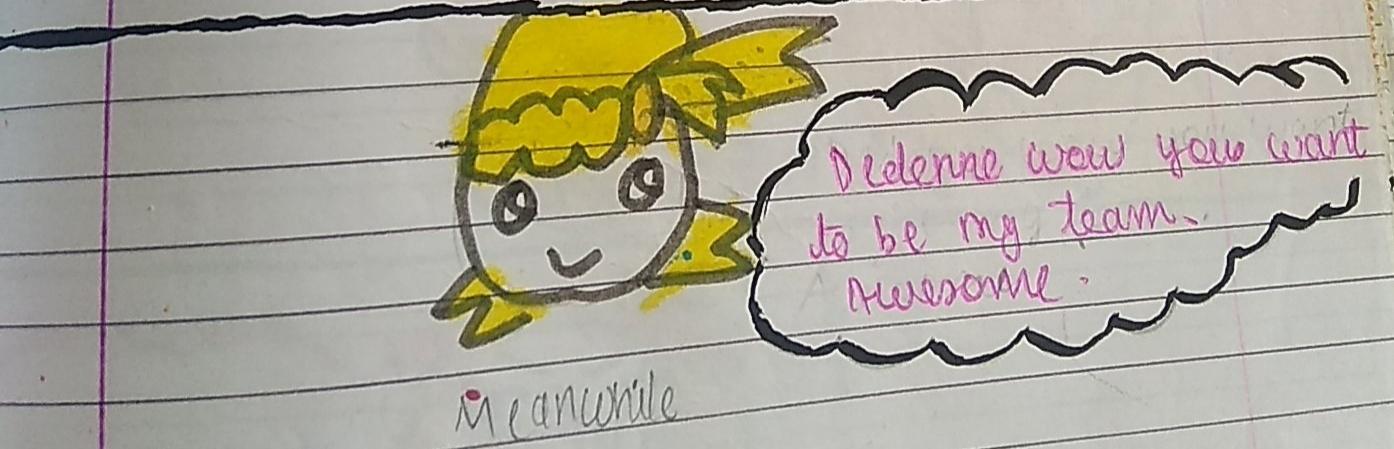 Dedenne wow you want
to be my team.
Awesome.
Meanwhile